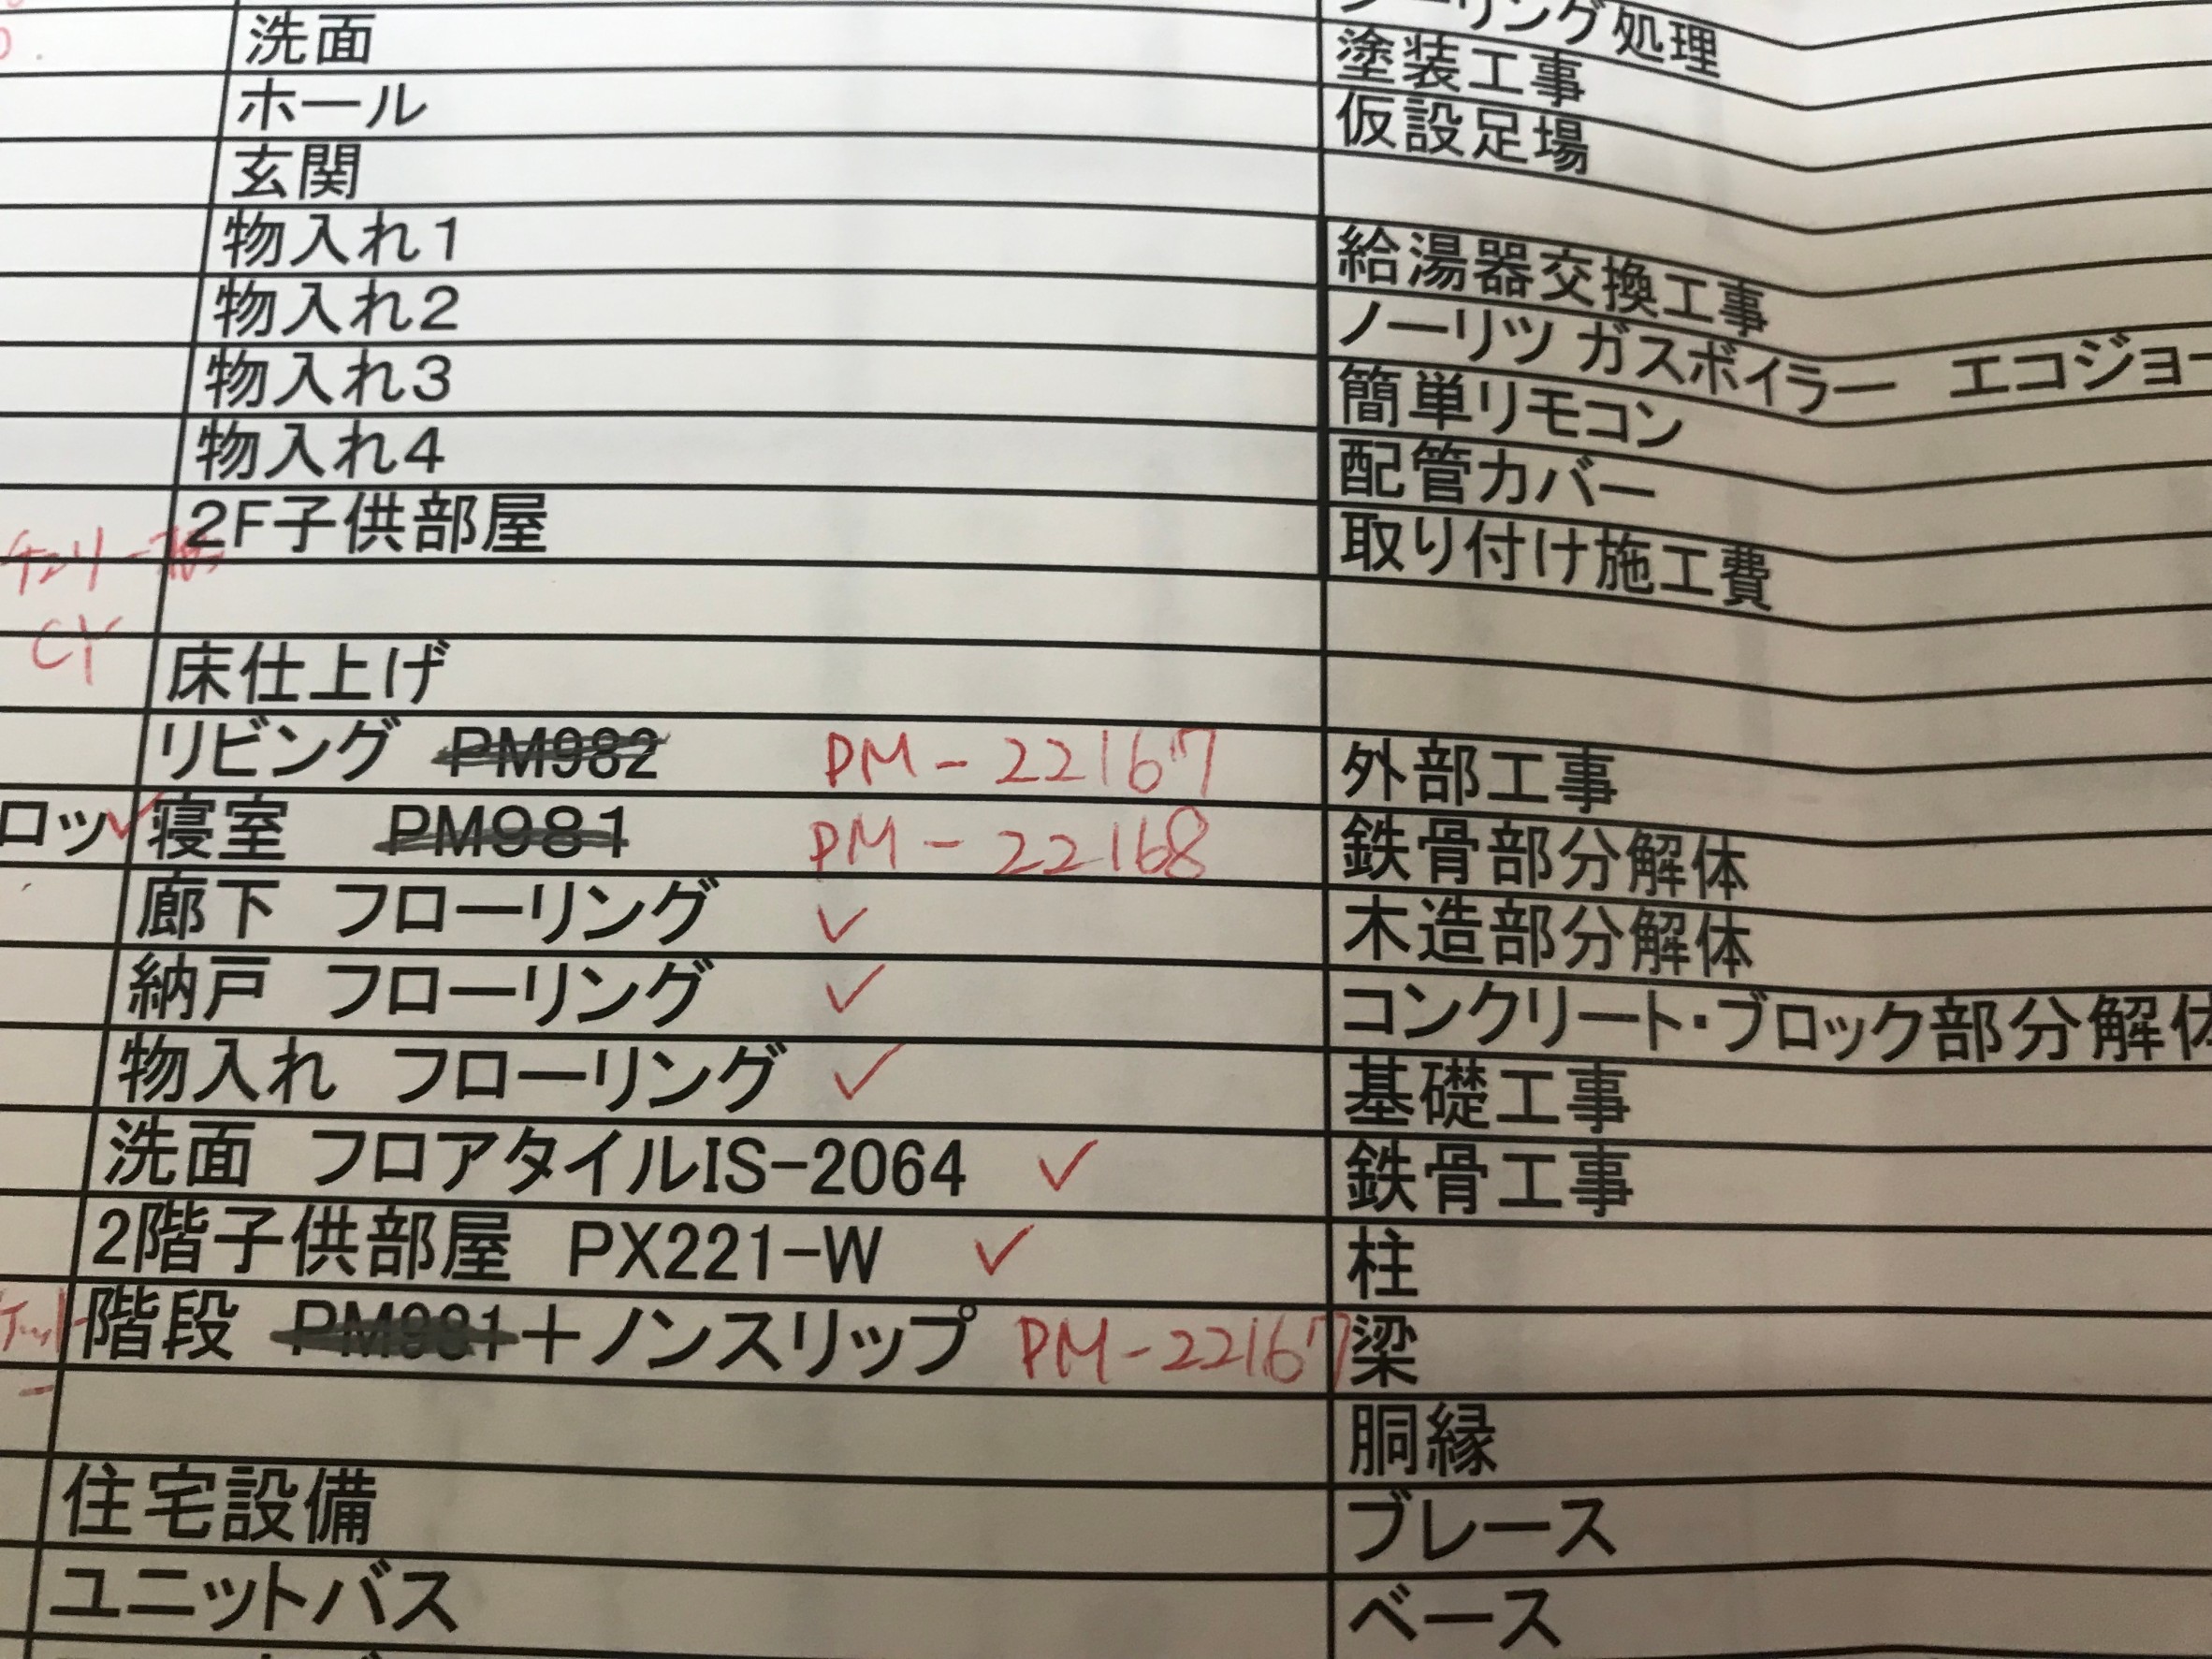 洗面
ホール
玄関
物入れ1
物入れ2
物入れ3
物入れ4
2F子供部屋
CY
床仕上げ
リビング PM982 PM-22167
ロッ 寝室 PM981 PM-22168
廊下 フローリング
納戸 フローリング
物入れ フローリング
洗面 フロアタイルIS-2064
2階子供部屋 PX221-W
階段 PM981+ノンスリップ PM-22167
住宅設備
ユニットバス
リング処理
塗装工事
仮設足場
給湯器交換工事
ノーリツ ガスボイラー エコジョー
簡単リモコン
配管カバー
取り付け施工費
外部工事
鉄骨部分解体
木造部分解体
コンクリート・ブロック部分解体
基礎工事
鉄骨工事
柱
梁
胴縁
ブレース
ベース